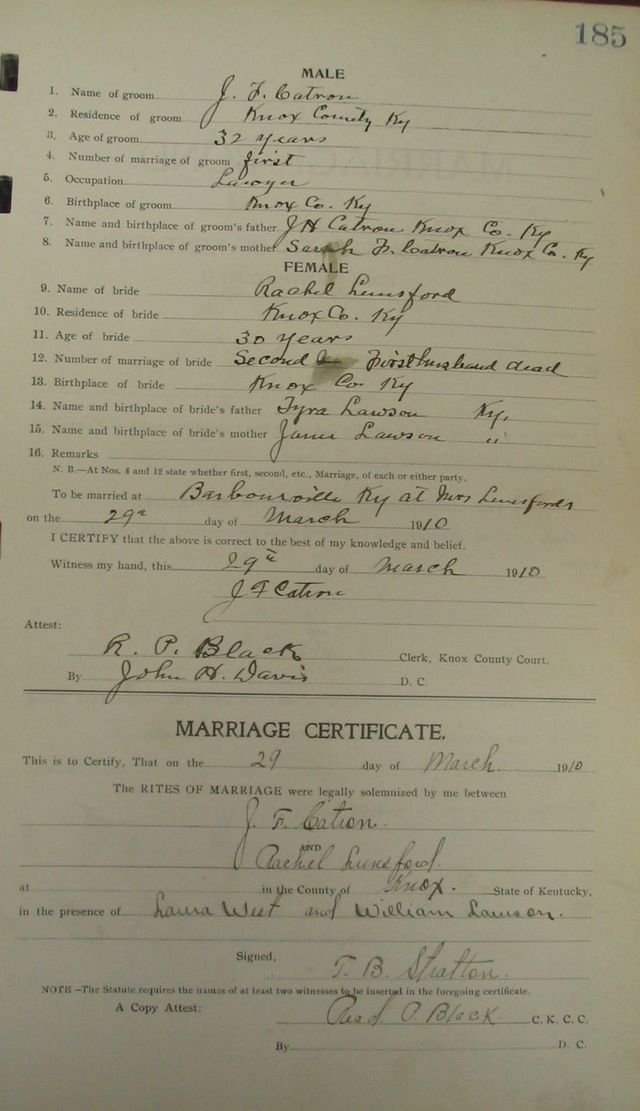 185
MALE
1. Name of groom J. F. Catron
2. Residence of groom Knox County Ky
3. Age of groom 32 years
4. Number of marriage of groom first
5. Occupation Lawyer
6. Birthplace of groom Knox Co. Ky
7. Name and birthplace of groom's father J H Catron Knox Co. Ky
8. Name and birthplace of groom's mother Sarah F. Catron Knox Co. Ky
FEMALE
9. Name of bride Rachel Lunsford
10. Residence of bride Knox Co. Ky
11. Age of bride 30 years
12. Number of marriage of bride Second First husband dead
13. Birthplace of bride Knox Co Ky
14. Name and birthplace of bride's father Tyra Lawson Ky.
15. Name and birthplace of bride's mother Lawson "
16. Remarks
N. B.—At Nos. 4 and 12 state whether first, second, etc., Marriage, of each or either party.
To be married at Barbourville Ky at Mrs Lunsfords
on the 29th day of March 1910
I CERTIFY that the above is correct to the best of my knowledge and belief.
Witness my hand, this 29th day of March 1910
J F Catron
Attest:
R. P. Black Clerk, Knox County Court.
By John H. Davis D. C.
MARRIAGE CERTIFICATE.
This is to Certify, That on the 29 day of March 1910
The RITES OF MARRIAGE were legally solemnized by me between
J. F. Catron.
AND
Rachel Lunsford.
at in the County of Knox. State of Kentucky,
in the presence of Laura West and William Lawson.
Signed, T. B. Stratton.
NOTE—The Statute requires the names of at least two witnesses to be inserted in the foregoing certificate.
A Copy Attest: Read P. Black C. K. C. C.
By D. C.